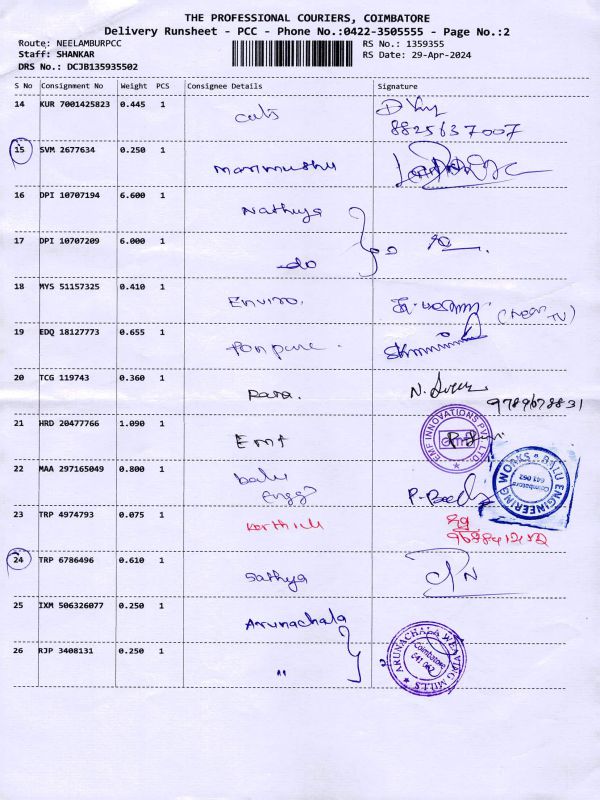 THE PROFESSIONAL COURIERS, COIMBATORE
Delivery Runsheet - PCC - Phone No.:0422-3505555 - Page No.:2
Route: NEELAMBURPCC
RS No.: 1359355
Staff: SHANKAR
RS Date: 29-Apr-2024
DRS No.: DCJB135935502
S No Consignment No Weight PCS Consignee Details Signature
14 KUR 7001425823 0.445 1
8825637007
15 SVM 2677634 0.250 1
16 DPI 10707194 6.600 1 Nathiya
17 DPI 10707209 6.000 1 do
18 MYS 51157325 0.410 1 Enviro.
(Near TV)
19 EDQ 18127773 0.655 1
20 TCG 119743 0.360 1
9789678831
21 HRD 20477766 1.090 1 EMF
EMF INNOVATIONS PVT. LTD.
22 MAA 297165049 0.800 1 balu
Engg
BALU ENGINEERING WORKS
Coimbatore
641 062
23 TRP 4974793 0.075 1 Karthick
24 TRP 6786496 0.610 1 Sathya
25 IXM 506326077 0.250 1 Arunachala
26 RJP 3408131 0.250 1 "
ARUNACHALA WEAVING MILLS
Coimbatore
641 062